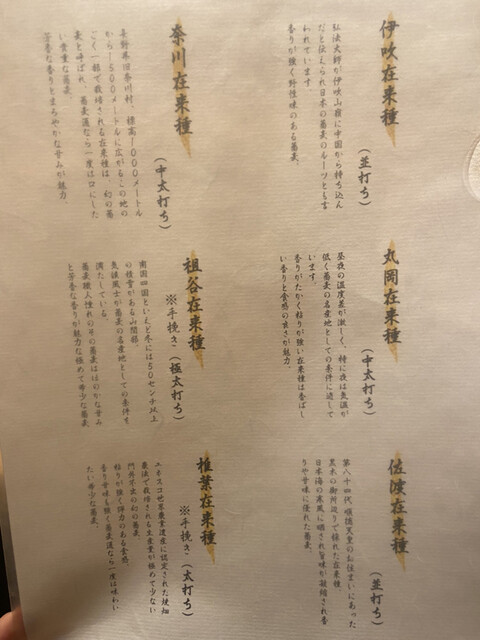 伊吹在来種
(並打ち)
弘法大師が伊吹山麓に中国から持ち込ん
だと伝えられ日本の蕎麦のルーツとも言
われています。
香りが強く野性味のある蕎麦。
奈川在来種
(中太打ち)
長野県旧奈川村、標高1000メートル
から1500メートルに広がるこの地の
ごく一部で栽培される在来種は、幻の蕎
麦と呼ばれ、蕎麦通なら一度は口にした
い貴重な蕎麦。
芳香な香りとまろやかな甘みが魅力。
丸岡在来種
(中太打ち)
昼夜の温度差が激しく、特に夜は気温が
低く蕎麦の名産地としての条件に適して
います。
香りがたかく粘りが強い在来種は香ばし
い香りと食感の良さが魅力。
祖谷在来種
※手挽き(極太打ち)
南国四国といえど冬には50センチ以上
の積雪がある山間部。
気候風土が蕎麦の名産地としての条件を
満たしている。
蕎麦職人憧れのその蕎麦はほのかな甘み
と芳香な香りが魅力な極めて希少な蕎麦
佐渡在来種
(並打ち)
第八十四代 順徳天皇のお住まいにあった
黒木の御所辺りで採れた在来種。
日本海の寒風に晒され旨味が凝縮され香
りや甘味に優れた蕎麦。
椎葉在来種
※手挽き(太打ち)
ユネスコ世界農業遺産に認定された焼畑
農法で栽培される生産量が極めて少ない
門外不出の幻の蕎麦
粘りが強く弾力のある食感、
香り甘味も強く蕎麦通なら一度は味わい
たい希少な蕎麦。